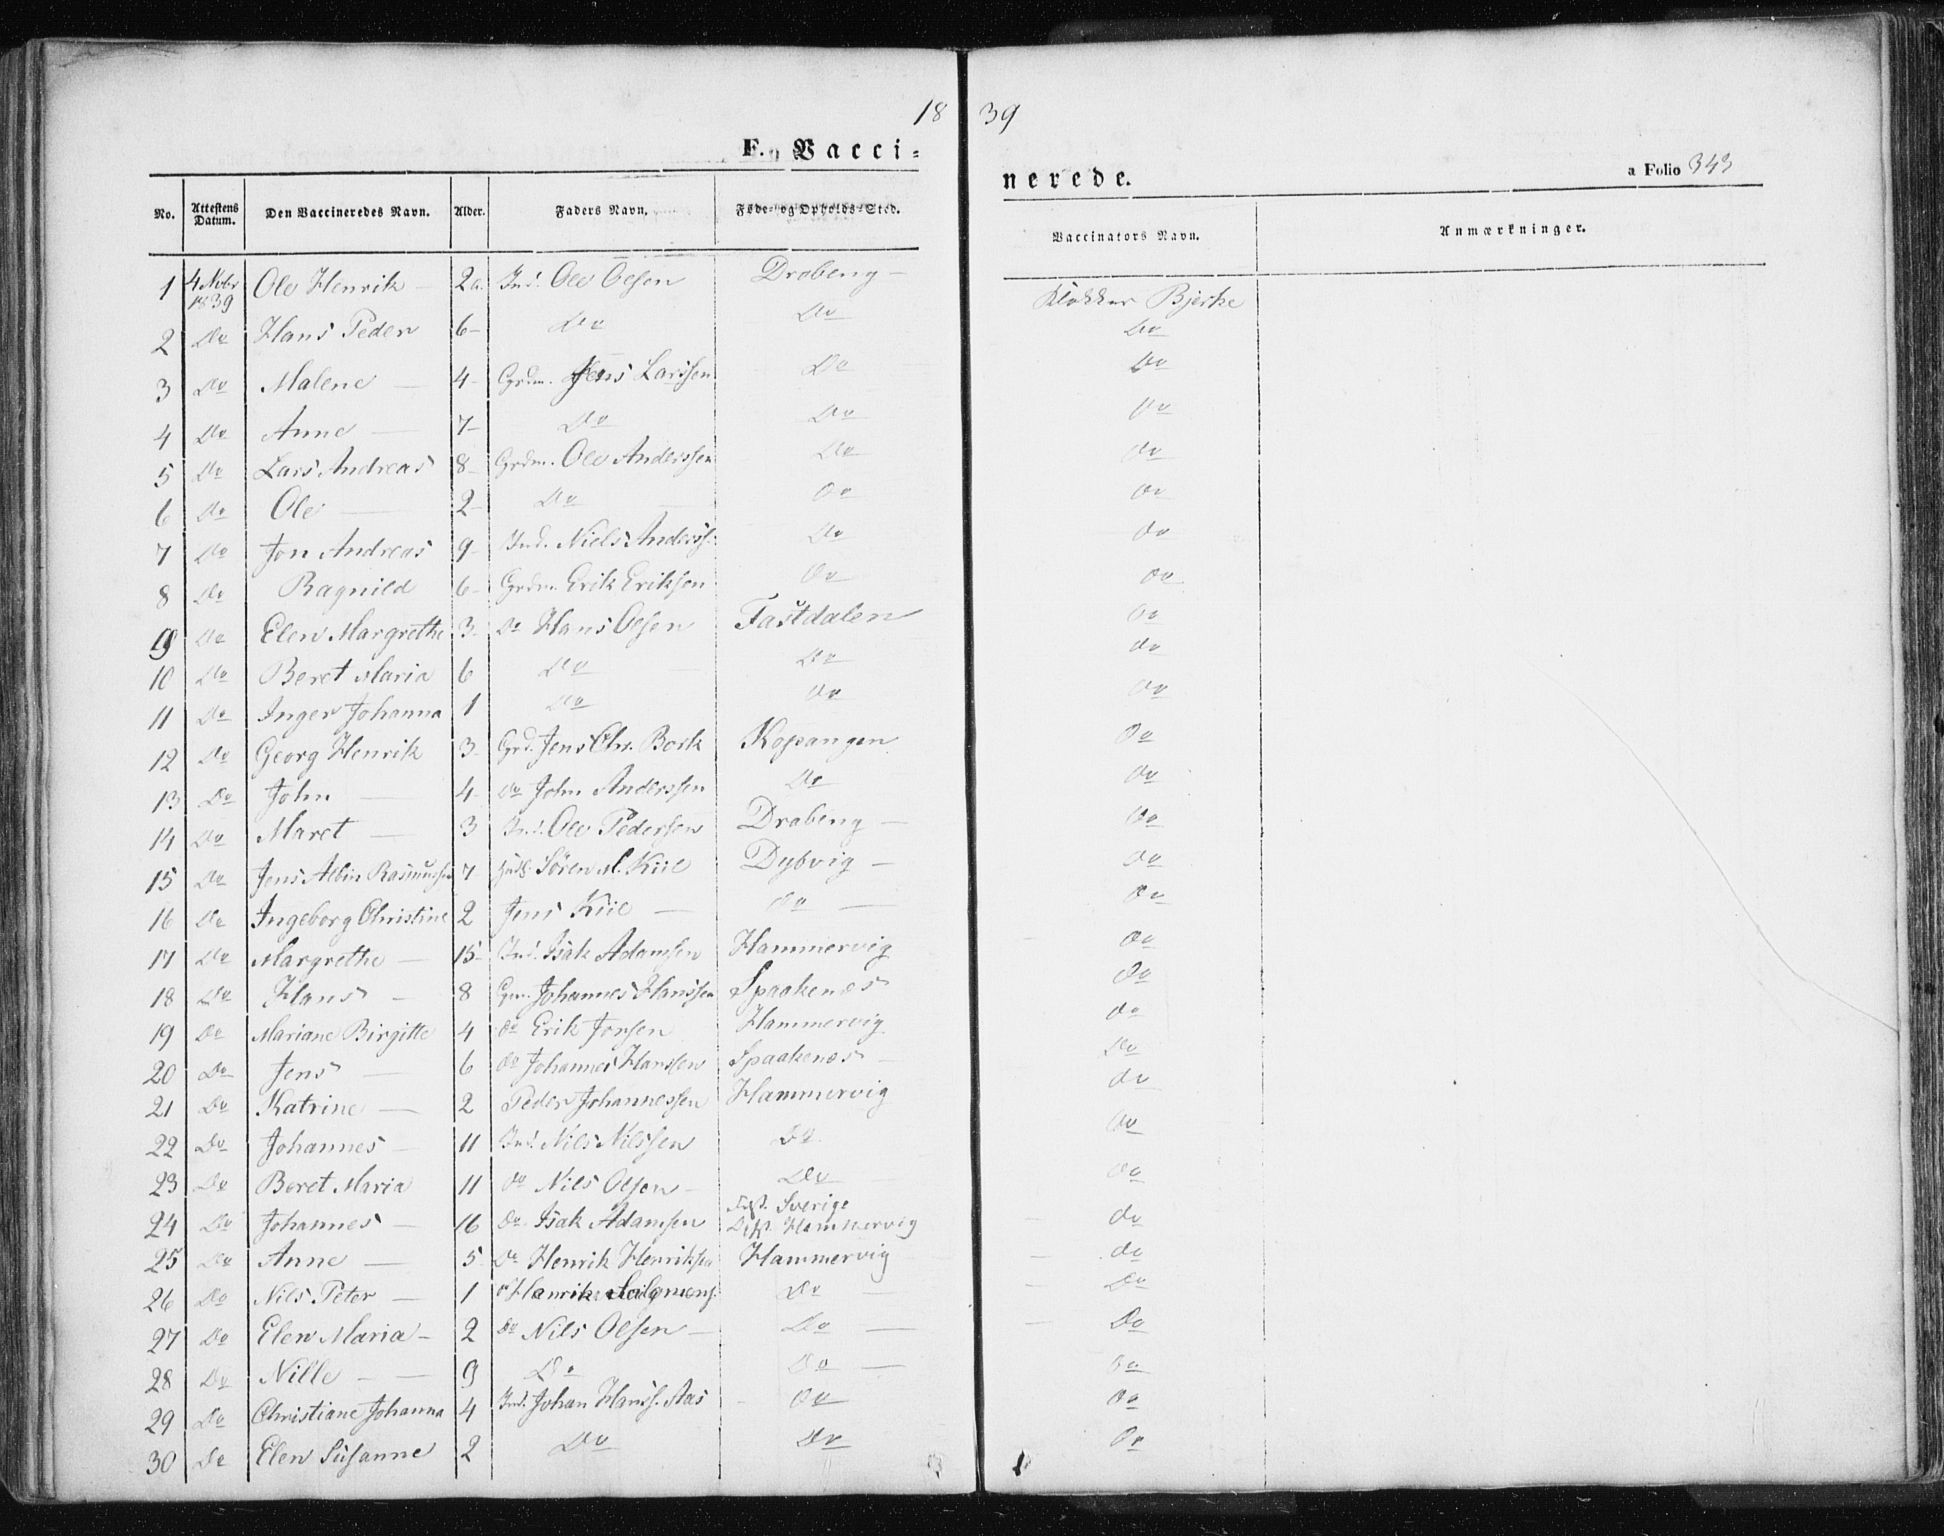 18 39
F. Vacci=
nerede.
a Folio 343
No. Attestens Datum. Den Vaccineredes Navn. Alder. Faders Navn. Føde- og Opholds-Sted. Vaccinators Navn. Anmærkninger.
1 4 Novbr 1839 Ole Henrik 2a. Ind. Ole Olsen Drabeng Klokker Bjerke
2 Do Hans Peder 6 Do Do Do
3 Do Malene 4 Grdm. Jens Larssen Do Do
4 Do Anne 7 Do Do Do
5 Do Lars Andreas 8 Grdm. Ole Anderssen Do Do
6 Do Ole 2 Do Do Do
7 Do Jon Andreas 9 Ind. Niels Anderss. Do Do
8 Do Ragnild 6 Grdm. Erik Eriksen Do Do
9 Do Elen Margrethe 3 Do Hans Olsen Fastdalen Do
10 Do Beret Maria 6 Do Do Do
11 Do Inger Johanna 1 Do Do Do
12 Do Georg Henrik 3 Grd. Jens Chr. Bork Kopangen Do
13 Do John 4 do John Anderssen Do Do
14 Do Maret 3 Ind. Ole Pedersen Drabeng Do
15 Do Jens Albin Rasmussen 7 Søren M. Kiil Dybvig Do
16 Do Ingeborg Christine 2 Jens Kiil Do Do
17 Do Margrethe 15 Ind. Isak Adamsen Hammervig Do
18 Do Hans 8 Gm. Johannes Hanssen Spaakenes Do
19 Do Mariane Birgitte 4 do Erik Jonsen Hammervig Do
20 Do Jens 6 do Johannes Hanssen Spaakenes Do
21 Do Katrine 2 Peder Johannessen Hammervig Do
22 Do Johannes 11 Ind. Nils Nilssen Do Do
23 Do Beret Maria 11 do Nils Olsen Do Do
24 Do Johannes 16 Do Isak Adamsen Sverige Hammervig do
25 Do Anne 5 Do Henrik Henriksen Hammervig do
26 Do Nils Peter 1 do Henrik Do Do
27 Do Elen Maria 2 Do Nils Olsen Do Do
28 Do Nille 9 Do Do Do
29 Do Christiane Johanna 4 Ind. Johan Hanss. Aas Do Do
30 Do Elen Susanne 2 Do Do Do